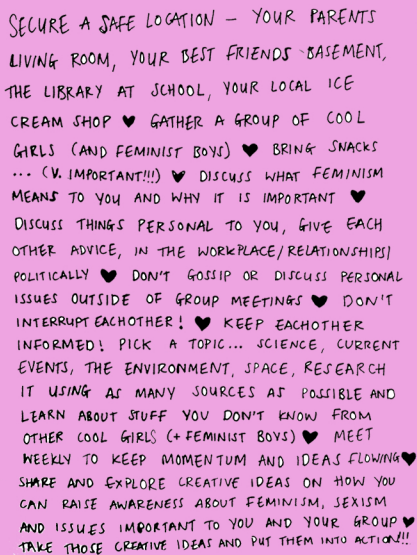 SECURE A SAFE LOCATION – YOUR PARENTS
LIVING ROOM, YOUR BEST FRIENDS BASEMENT,
THE LIBRARY AT SCHOOL, YOUR LOCAL ICE
CREAM SHOP ♥ GATHER A GROUP OF COOL
GIRLS (AND FEMINIST BOYS) ♥ BRING SNACKS
... (V. IMPORTANT!!!) ♥ DISCUSS WHAT FEMINISM
MEANS TO YOU AND WHY IT IS IMPORTANT ♥
DISCUSS THINGS PERSONAL TO YOU, GIVE EACH
OTHER ADVICE, IN THE WORKPLACE/RELATIONSHIPS/
POLITICALLY ♥ DON'T GOSSIP OR DISCUSS PERSONAL
ISSUES OUTSIDE OF GROUP MEETINGS ♥ DON'T
INTERRUPT EACHOTHER! ♥ KEEP EACHOTHER
INFORMED! PICK A TOPIC... SCIENCE, CURRENT
EVENTS, THE ENVIRONMENT, SPACE, RESEARCH
IT USING AS MANY SOURCES AS POSSIBLE AND
LEARN ABOUT STUFF YOU DON'T KNOW FROM
OTHER COOL GIRLS (+ FEMINIST BOYS) ♥ MEET
WEEKLY TO KEEP MOMENTUM AND IDEAS FLOWING ♥
SHARE AND EXPLORE CREATIVE IDEAS ON HOW YOU
CAN RAISE AWARENESS ABOUT FEMINISM, SEXISM
AND ISSUES IMPORTANT TO YOU AND YOUR GROUP ♥
TAKE THOSE CREATIVE IDEAS AND PUT THEM INTO ACTION!!